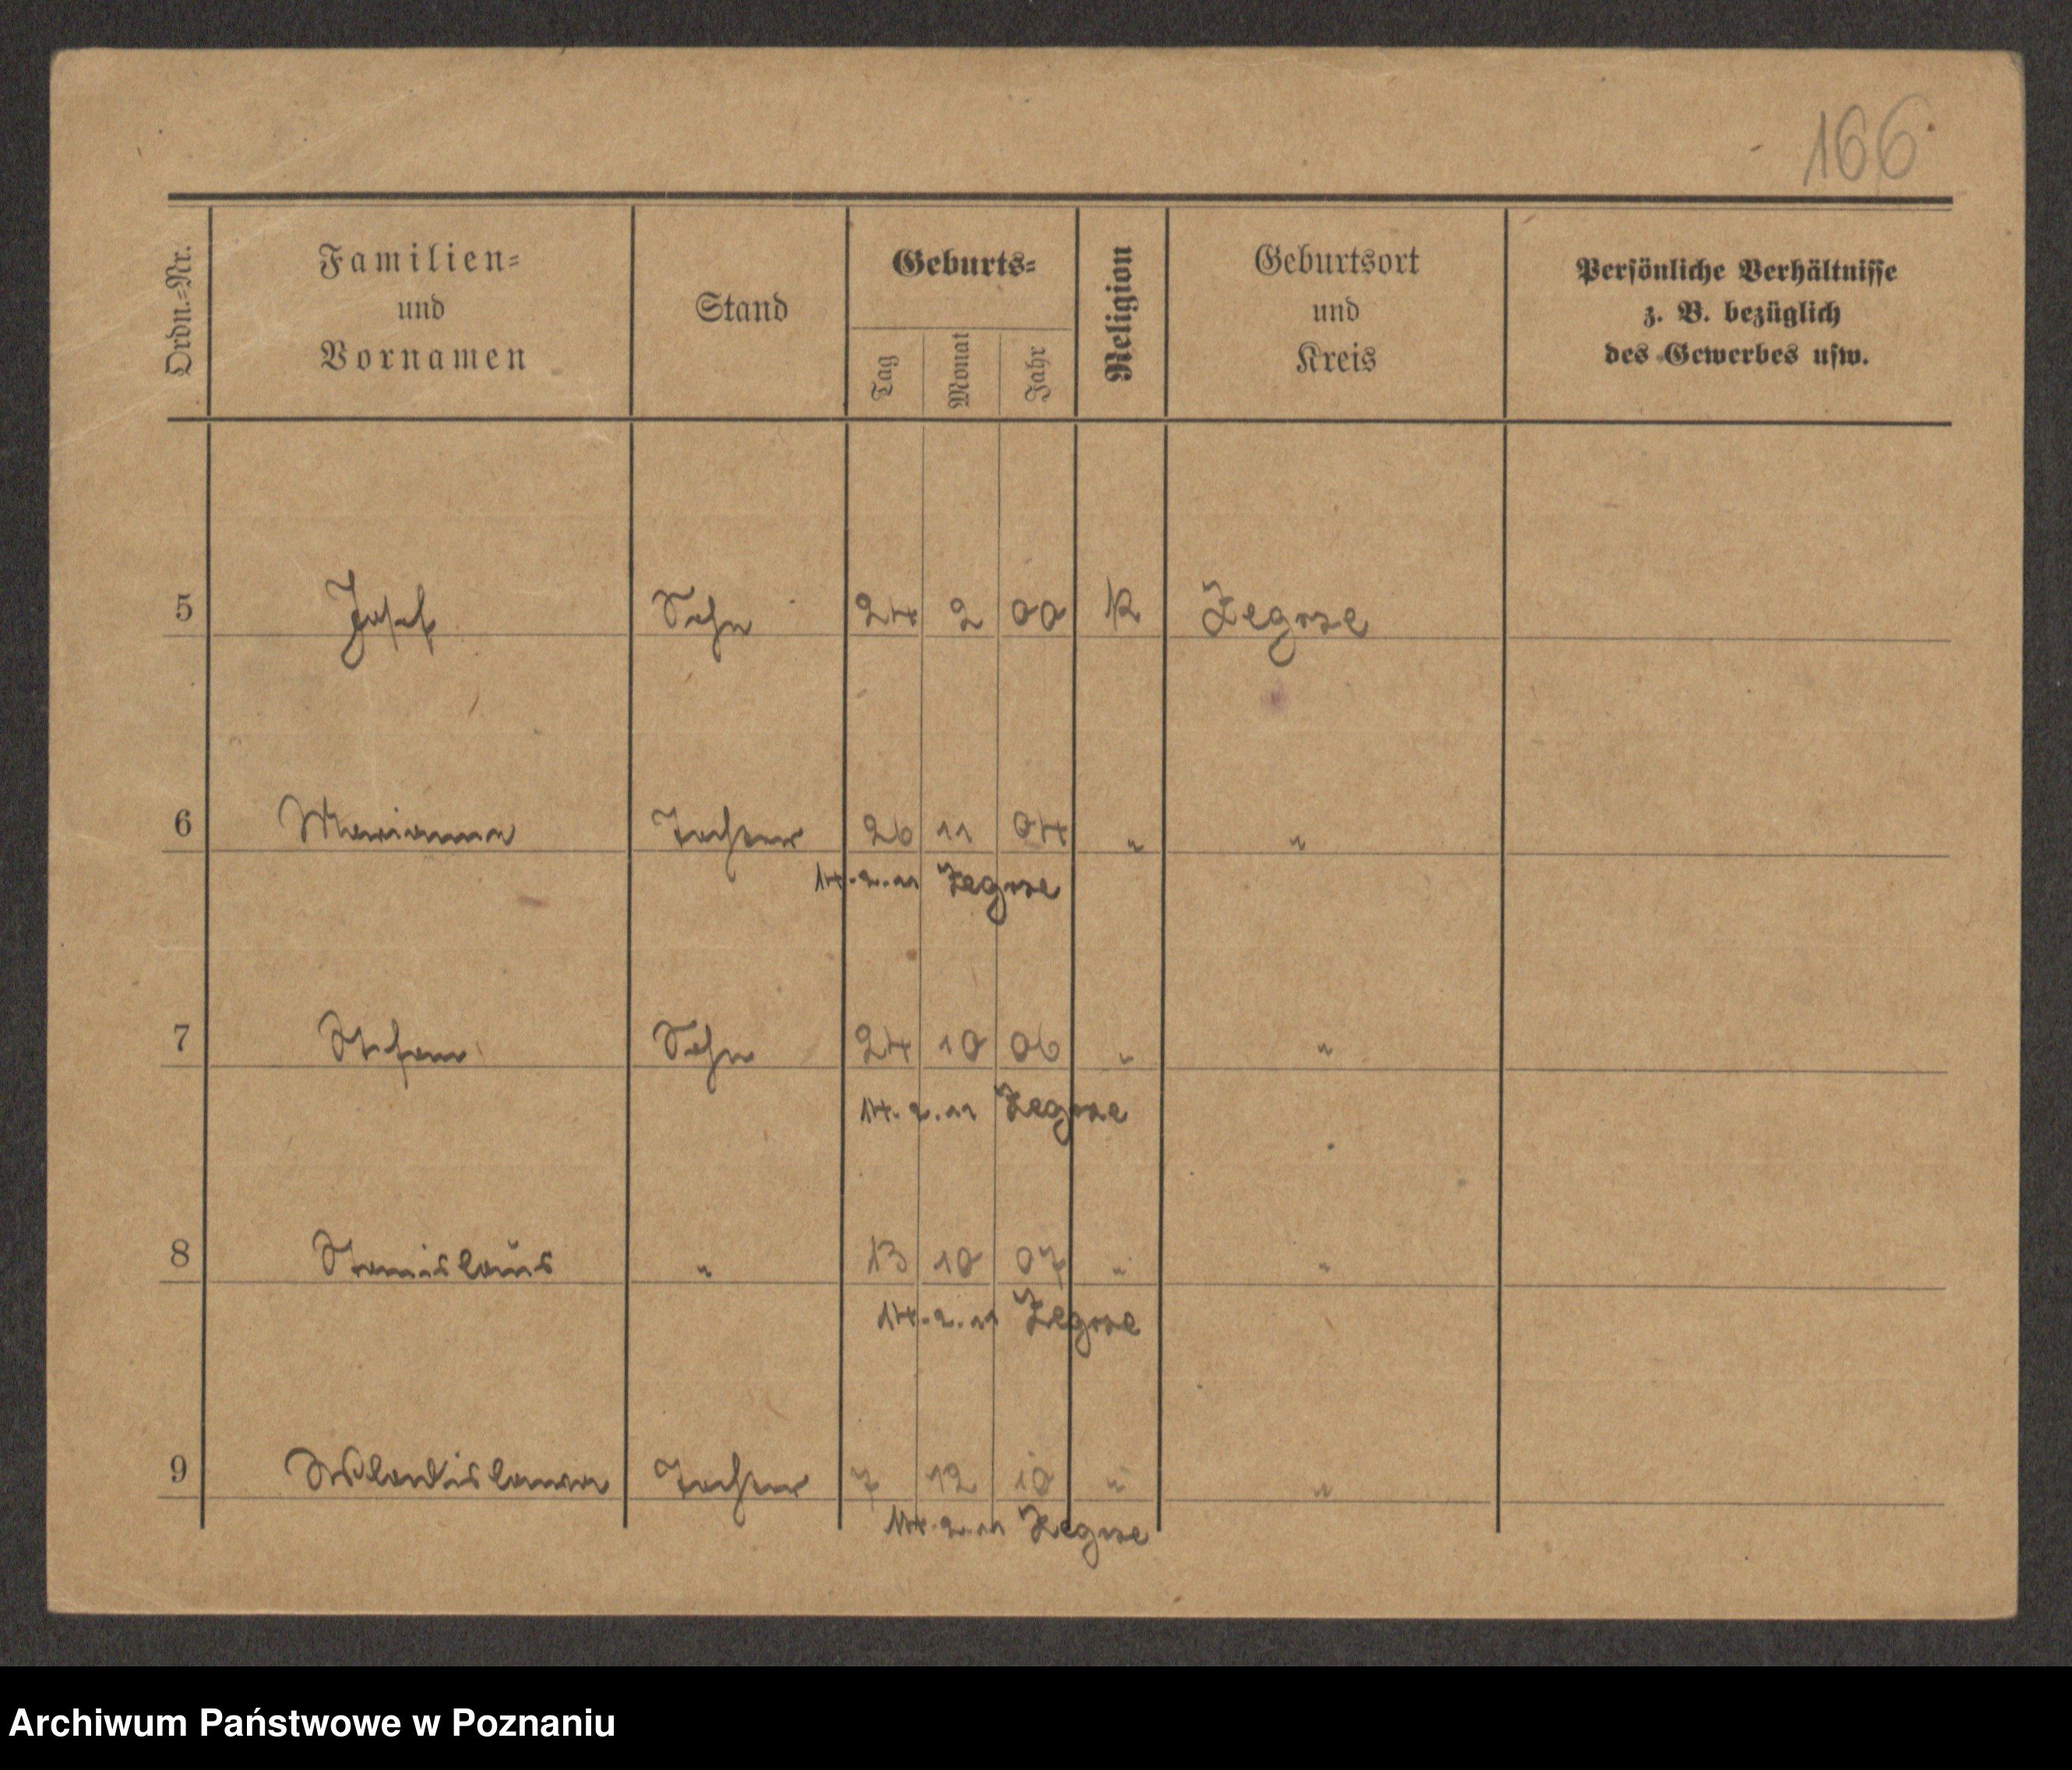 166
Ordn.=Nr.
Familien=
und
Vornamen
Stand
Geburts=
Tag
Monat
Jahr
Religion
Geburtsort
und
Kreis
Persönliche Verhältnisse
z. B. bezüglich
des Gewerbes usw.
5 Josef Sohn 24 2 00 K Zegrze
6 Marianna Tochter 26 11 04 " "
14.2.11 Zegrze
7 Stefan Sohn 24 10 06 " "
14.2.11 Zegrze
8 Stanislaus " 13 10 07 " "
14.2.11 Zegrze
9 Wladislawa Tochter 7 12 10 " "
14.2.11 Zegrze
Archiwum Państwowe w Poznaniu